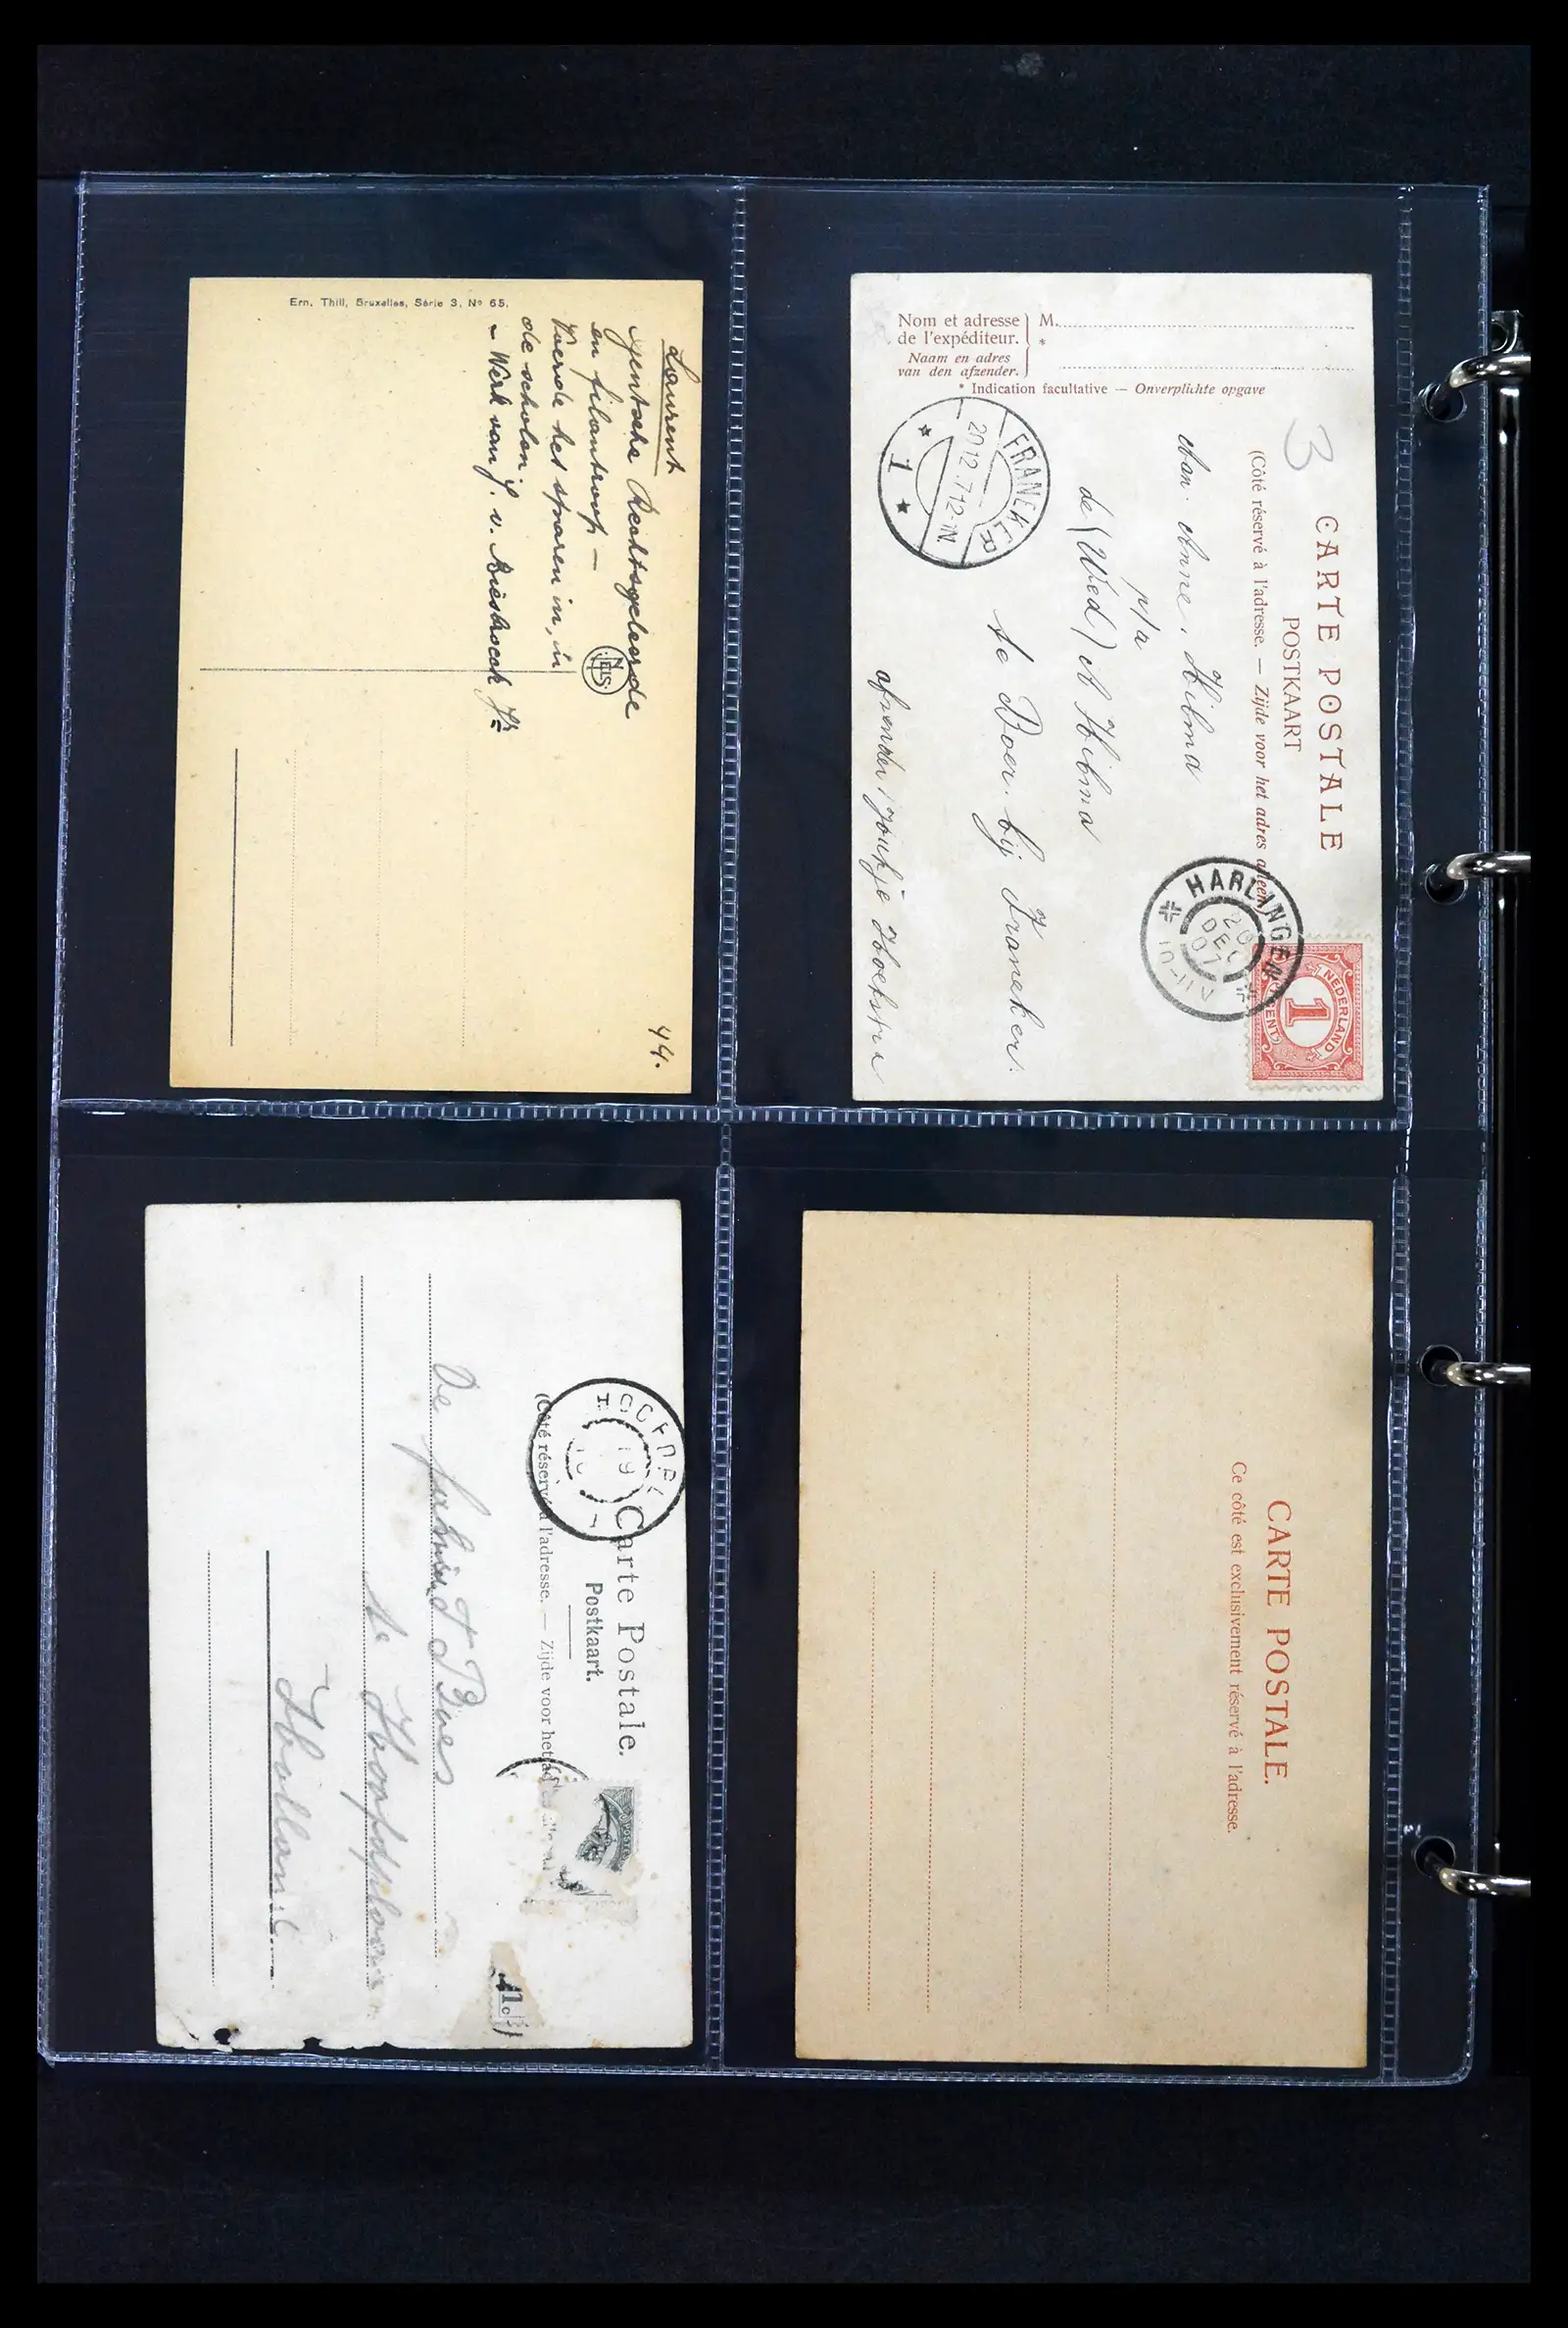 Ern. Thill, Bruxelles, Série 3, No 65.
Laurent
Gentsche Rechtsgeleerde
en filantroop —
Voerde het sparen in, in
de scholen.
— Werk van J. v. Biesbroeck Jr
NELS
44.
Nom et adresse
de l'expéditeur.
Naam en adres
van den afzender.
M.
*
* Indication facultative — Onverplichte opgave
3
CARTE POSTALE
POSTKAART
(Côté réservé à l'adresse. — Zijde voor het adres alleen)
Aan Anne Hibma
p/a
de (Wed) A Hibma
te Boer bij Franeker.
afzender Joukje Hoekstra
FRANEKER
20 12.7 12-1N
1
HARLINGEN
20
DEC
07
NEDERLAND
1
CENT
Carte Postale.
Postkaart.
(Côté réservé à l'adresse. — Zijde voor het
De
te Hoofdplaat
Holland
CARTE POSTALE.
Ce côté est exclusivement réservé à l'adresse.